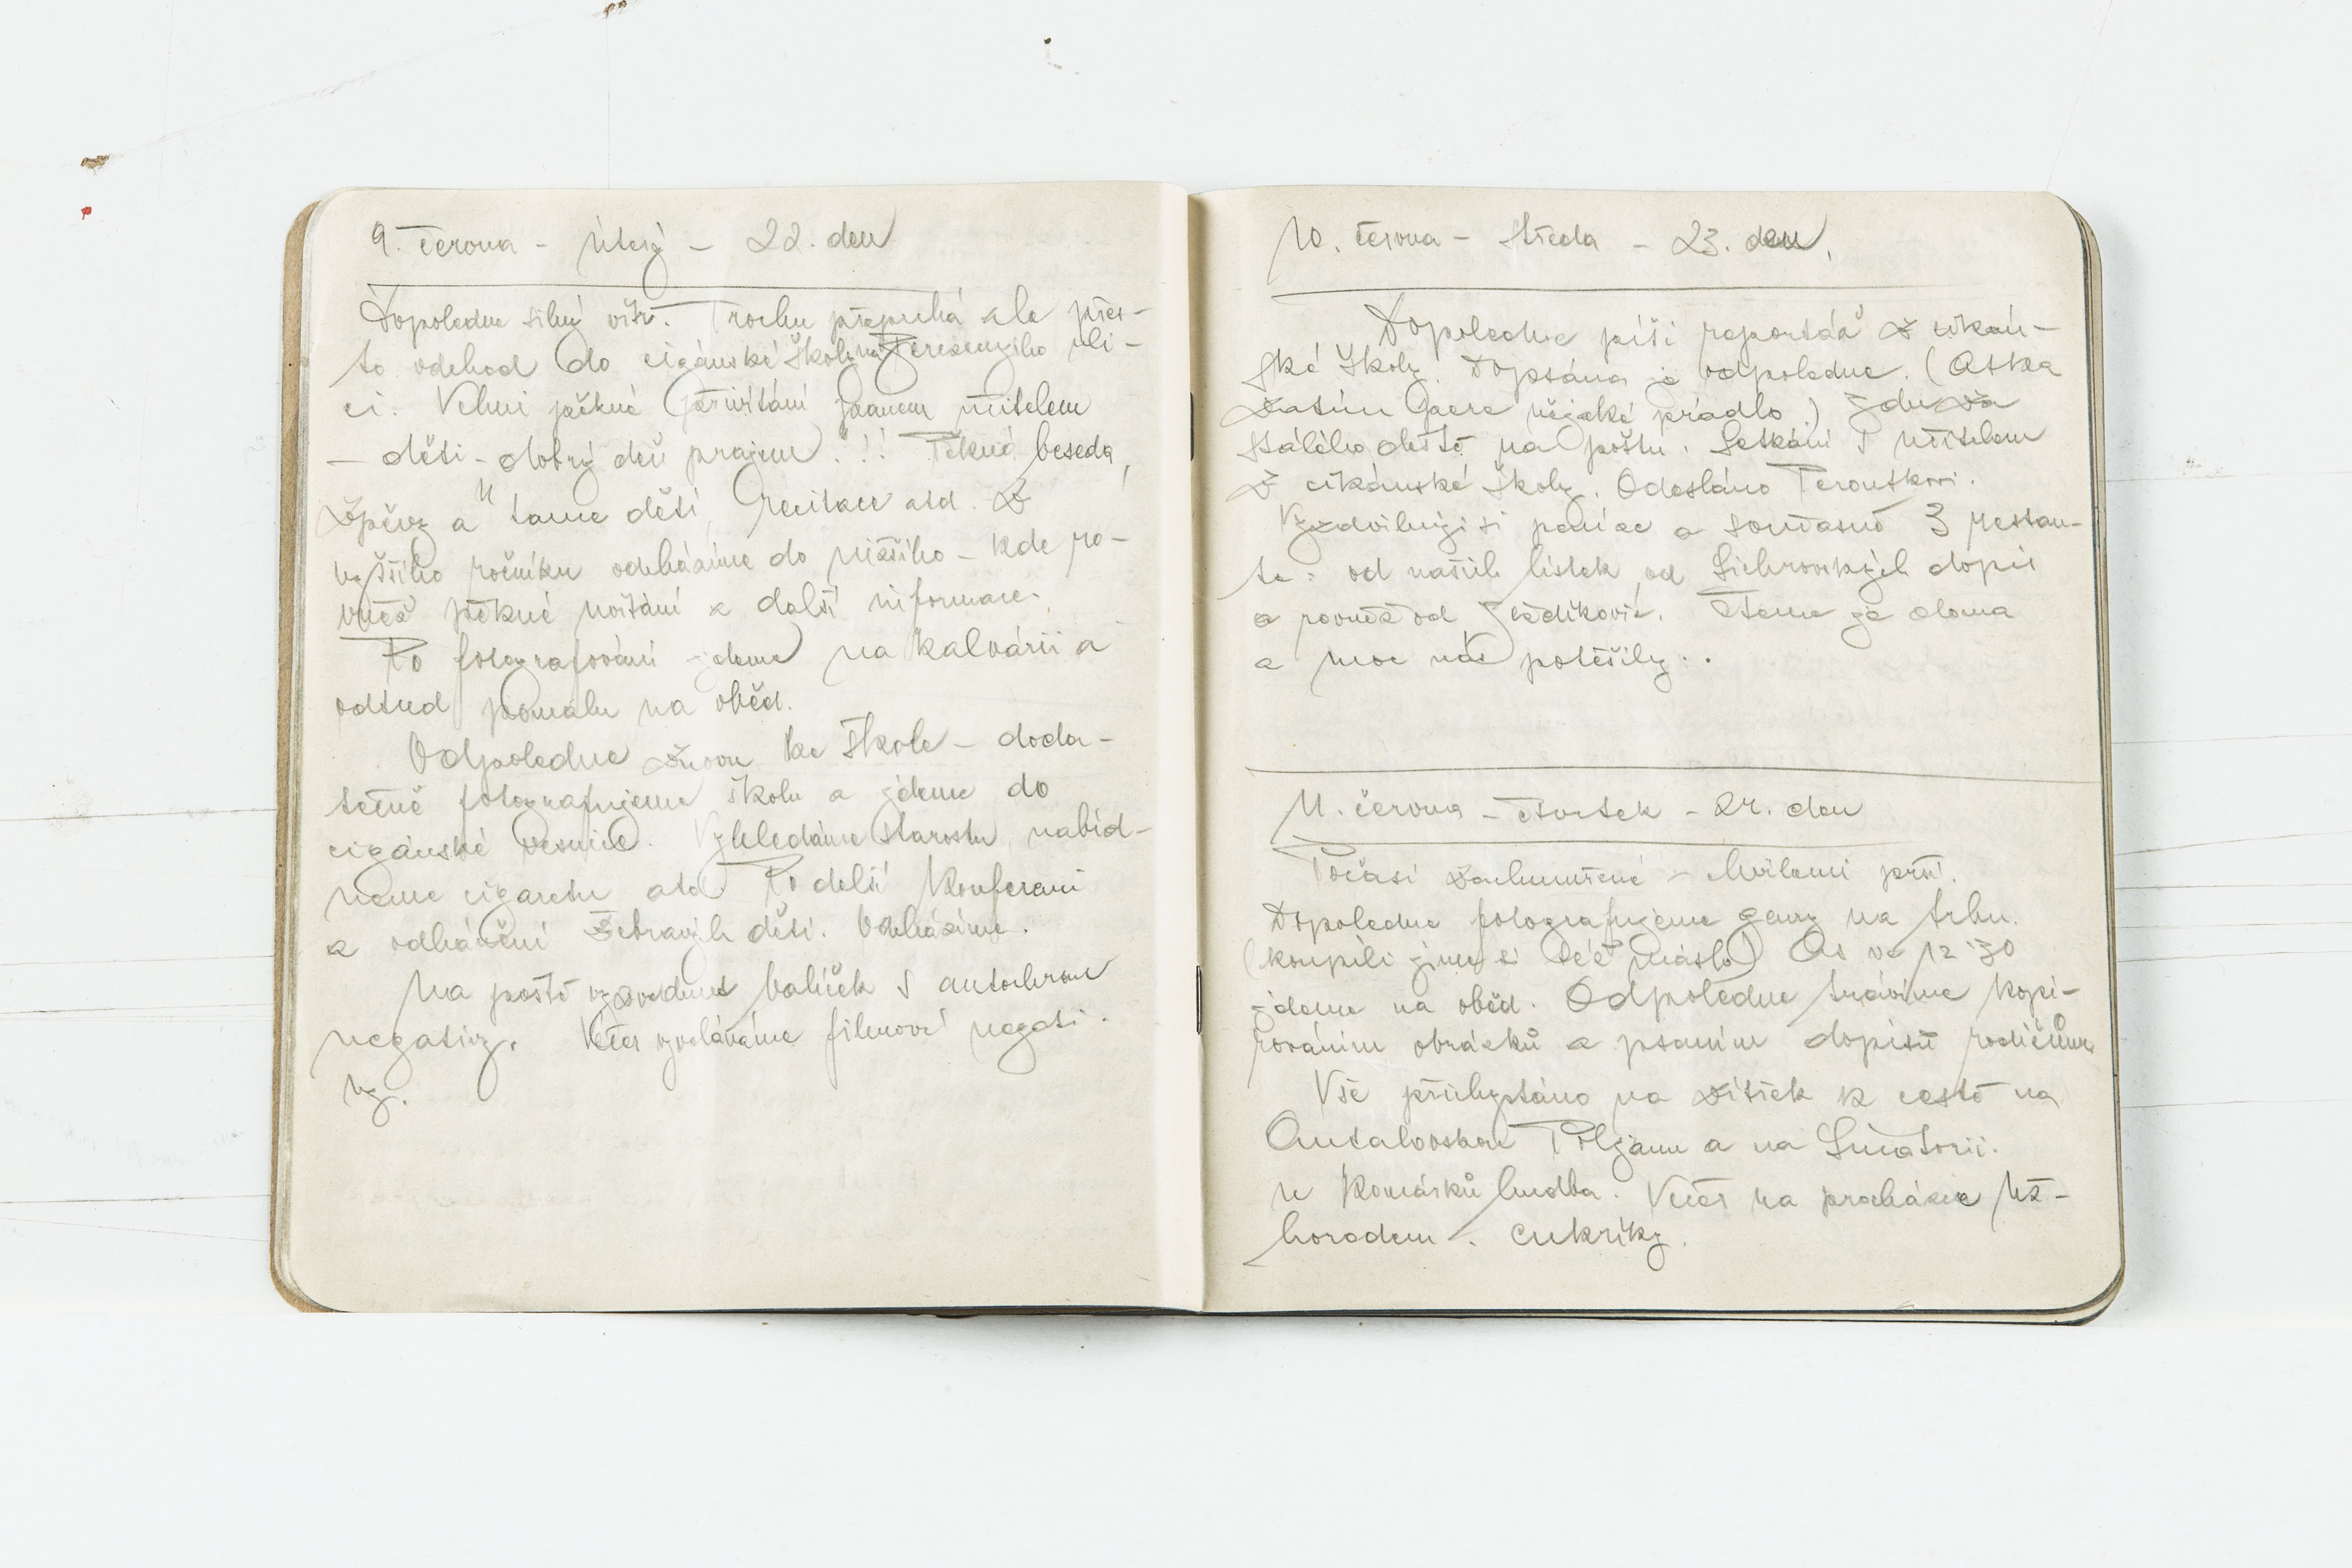 9. června - úterý - 22. den
Dopoledne silný vítr. Trochu přeprchá ale přes-
to odchod do cigánské školy na ulici
ci. Velmi pěkné přivítání panem učitelem
- děti - dobrý deň prajem!!! Pěkná beseda,
zpěvy a tance dětí, recitace atd. Z
vyššího ročníku odcházíme do nižšího - kde ro-
vněž pěkné uvítání a další informace.
Po fotografování jdeme na kalvárii a
odtud pomalu na oběd.
Odpoledne znovu ke škole - doda-
tečně fotografujeme školu a jdeme do
cigánské vesnice. Vyhledáme starostu, nabíd-
neme cigaretu atd. Po delší konferenci
a odhánění žebravých dětí. Odcházíme.
Na poště vyzvednut balíček s autochrom
negativy. Večer vyvoláváme filmové negati-
vy.
10. června - středa - 23. den.
Dopoledne píši reportáž z cikán-
ské školy. Dopsána je odpoledne. (Aska
zatím pere nějaké prádlo) Jdu za
stálého deště na poštu. Setkání s učitelem
z cikánské školy. Odesláno Peroutkovi.
Vyzdvihuji si peníze a současně 3 restan-
te: od našich lístek, od Sichrovských dopis
a rovněž od . Čteme je doma
a moc nás potěšily..
11. června - čtvrtek - 24. den
Počasí zachmuřené - chvílemi prší.
Dopoledne fotografujeme genry na trhu.
(koupili jsme si též máslo) As ve 12 30
jdeme na oběd. Odpoledne trávíme kopí-
rováním obrázků a psaním dopisů rodičům
Vše přichystáno na zítřek k cestě na
Antalovskou Poljanu a na Sinatorii.
u Komárků hudba. Večer na procházce Už-
horodem. cukríky.